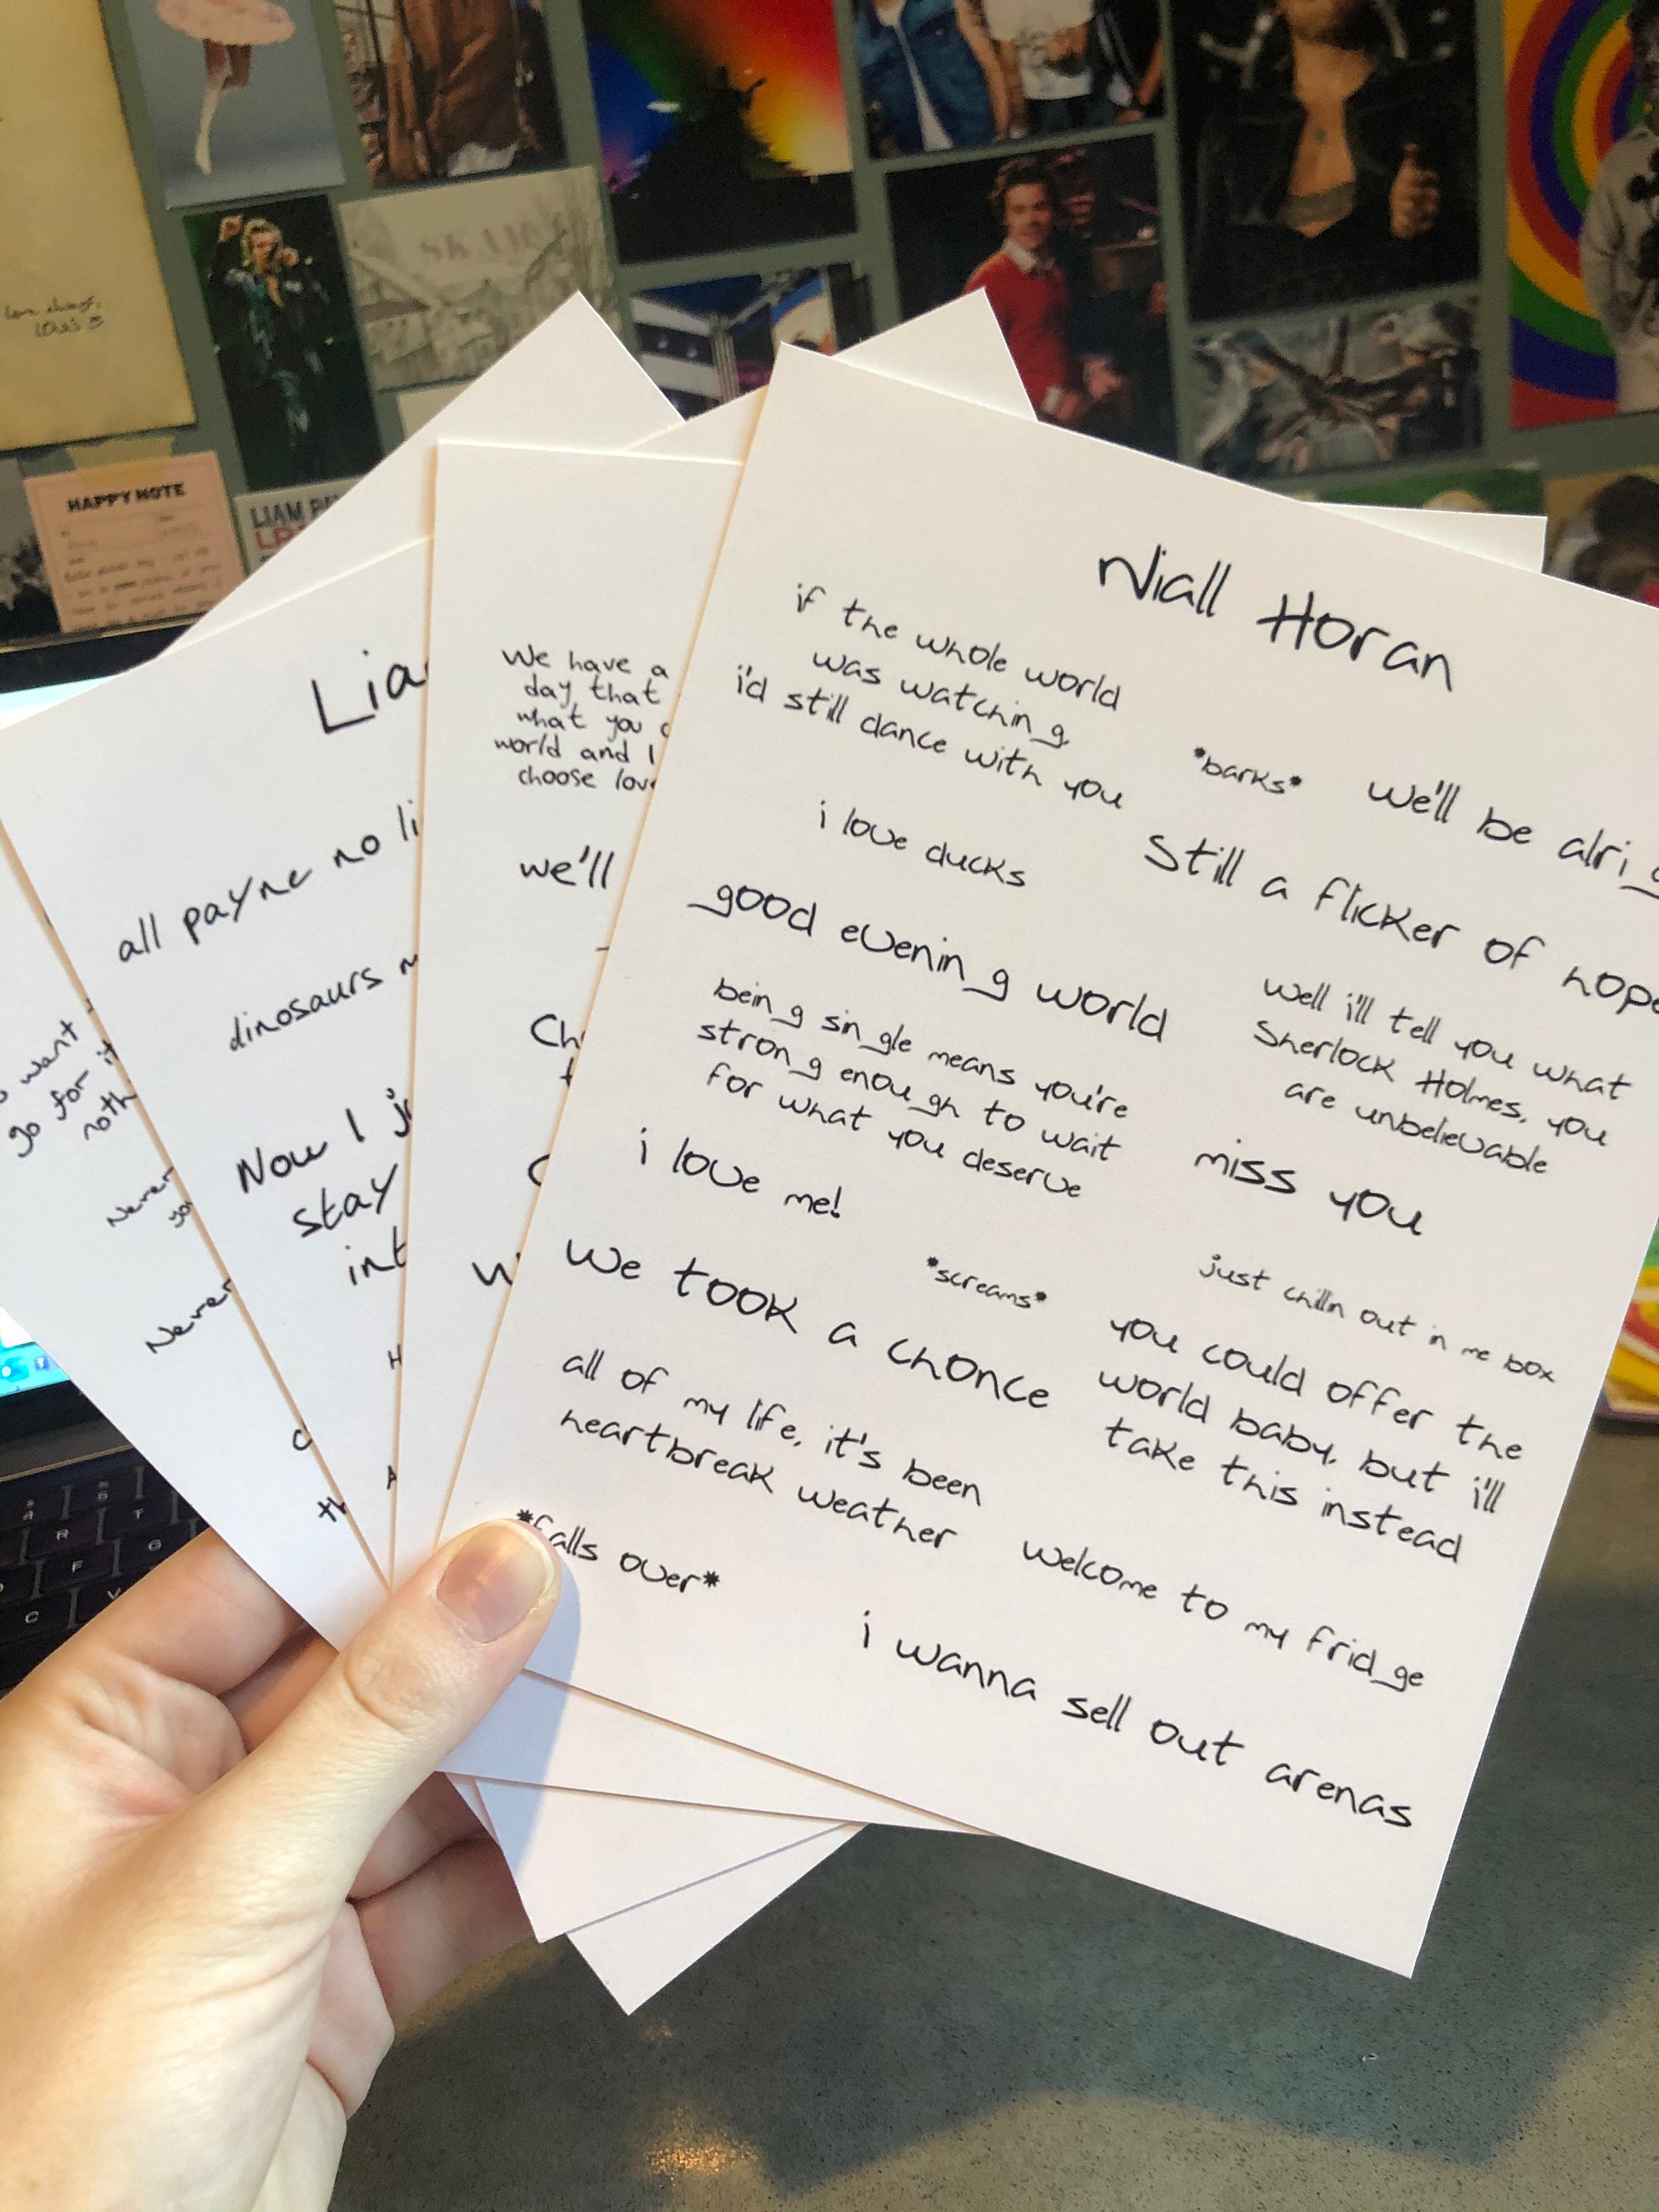 love always,
LOUIS
SK 110
HAPPY NOTE
LIAM P
LP
Niall Horan
if the whole world
was watching
i'd still dance with you
*barks*
we'll be alrig
i love ducks
Still a flicker of hope
good evening world
being single means you're
strong enough to wait
for what you deserve
well i'll tell you what
Sherlock Holmes, you
are unbelievable
i love me!
miss you
*screams*
just chilln out in me box
We took a chonce
you could offer the
world baby, but i'll
take this instead
all of my life, it's been
heartbreak weather
*falls over*
welcome to my fridge
i wanna sell out arenas
We have a
day that
what you
world and I
choose love
we'll
Ch
Lia
all payne no li
dinosaurs
Now I ju
stay
int
H
A
want
go for it
noth
Never
yo
Never
th